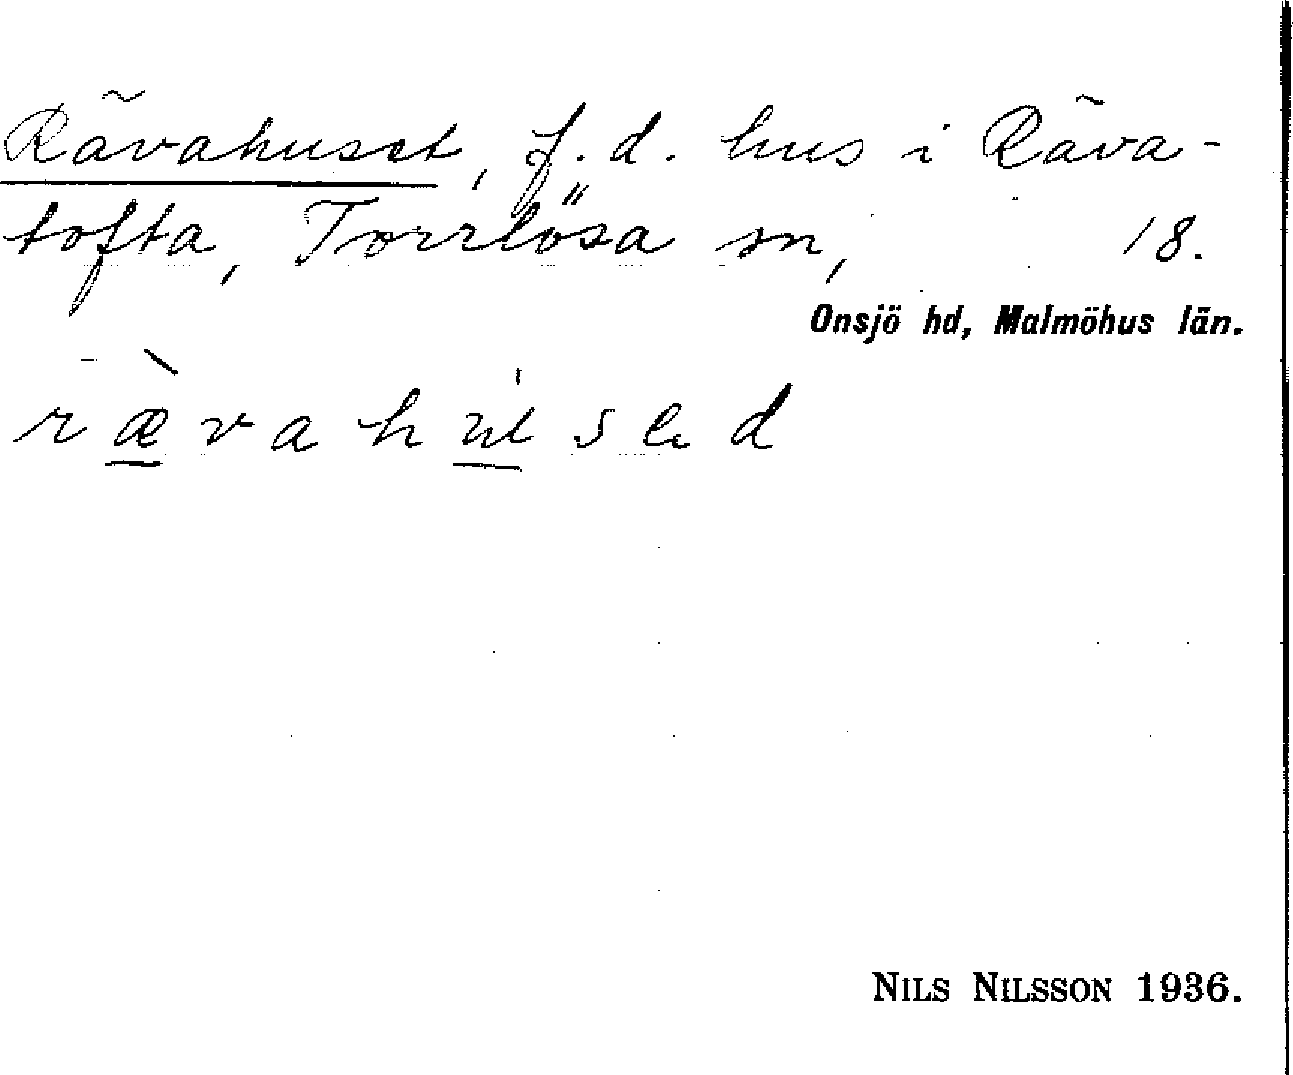 Rävahuset, f.d. hus i Räva-
tofta, Torrlösa sn, 18.
Onsjö hd, Malmöhus län.
ræ̀vahu̍sed
NILS NILSSON 1936.